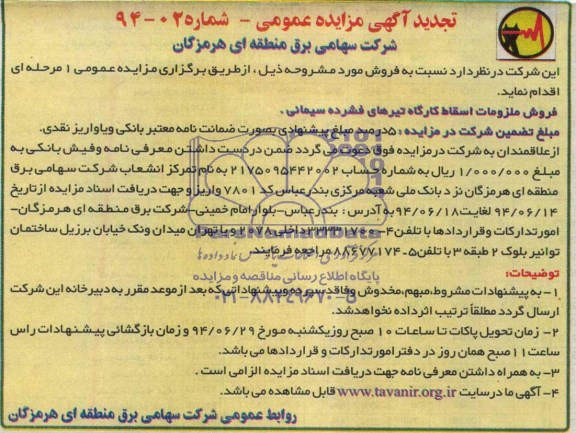 تجدید آگهی مزایده عمومی - شماره ۰۲-۹۴
شرکت سهامی برق منطقه ای هرمزگان
این شرکت در نظر دارد نسبت به فروش مورد مشروحه ذیل، از طریق برگزاری مزایده عمومی ۱ مرحله ای
اقدام نماید.
فروش ملزومات اسقاط کارگاه تیرهای فشرده سیمانی.
مبلغ تضمین شرکت در مزایده: ۵درصد مبلغ پیشنهادی بصورت ضمانت نامه معتبر بانکی و یا واریز نقدی.
از علاقمندان به شرکت در مزایده فوق دعوت می گردد ضمن در دست داشتن معرفی نامه و فیش بانکی به
مبلغ ۱/۰۰۰/۰۰۰ ریال به شماره حساب ۲۱۷۵۰۹۵۴۴۲۰۰۲ به نام تمرکز انشعاب شرکت سهامی برق
منطقه ای هرمزگان نزد بانک ملی شعبه مرکزی بندرعباس کد ۷۸۰۱ واریز و جهت دریافت اسناد مزایده از تاریخ
۹۴/۰۶/۱۴ لغایت ۹۴/۰۶/۱۸ به آدرس: بندرعباس-بلوار امام خمینی-شرکت برق منطقه ای هرمزگان-
امور تدارکات و قراردادها با تلفن ۴- داخلی ۲۰۷۸ و یا تهران میدان ونک خیابان برزیل ساختمان
توانیر بلوک ۲ طبقه ۳ با تلفن ۵-۸۸۶۷۷۱۷۴ مراجعه فرمایند.
پایگاه اطلاع رسانی مناقصه و مزایده
توضیحات:
۰۲۱-۸۸۳۴۹۶۷۰-۵
۱- به پیشنهادات مشروط، مبهم، مخدوش و فاقد سپرده و پیشنهاداتی که بعد از موعد مقرر به دبیرخانه این شرکت
ارسال گردد مطلقاً ترتیب اثر داده نخواهد شد.
۲- زمان تحویل پاکات تا ساعات ۱۰ صبح روز یکشنبه مورخ ۹۴/۰۶/۲۹ و زمان بازگشائی پیشنهادات راس
ساعت ۱۱ صبح همان روز در دفتر امور تدارکات و قراردادها می باشد.
۳- به همراه داشتن معرفی نامه جهت دریافت اسناد مزایده الزامی است.
۴- آگهی ما در سایت www.tavanir.org.ir قابل مشاهده می باشد.
روابط عمومی شرکت سهامی برق منطقه ای هرمزگان